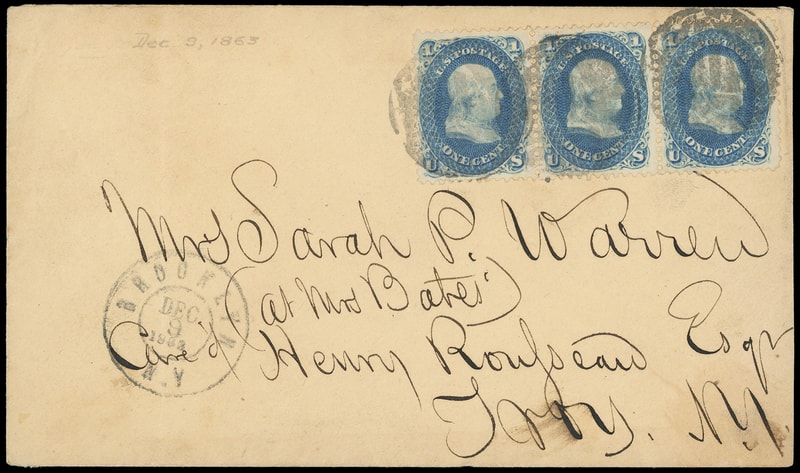 Dec 9, 1863
1 U.S. POSTAGE 1
U ONE CENT S
1 U.S. POSTAGE 1
U ONE CENT S
1 U.S. POSTAGE 1
U ONE CENT S
Mrs Sarah P. Warren
(at Mrs Bates')
Care of Henry Rousseau Esqr
Troy. N.Y.
BROOKLYN
DEC.
9
1863
N.Y